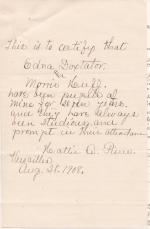 This is to certify that
Edna Doxtator
Morris Huff
have been pupils of
mine for seven years.
and they have always
been studious and
prompt in their attendance
Hattie
Aug. 28. 1908.